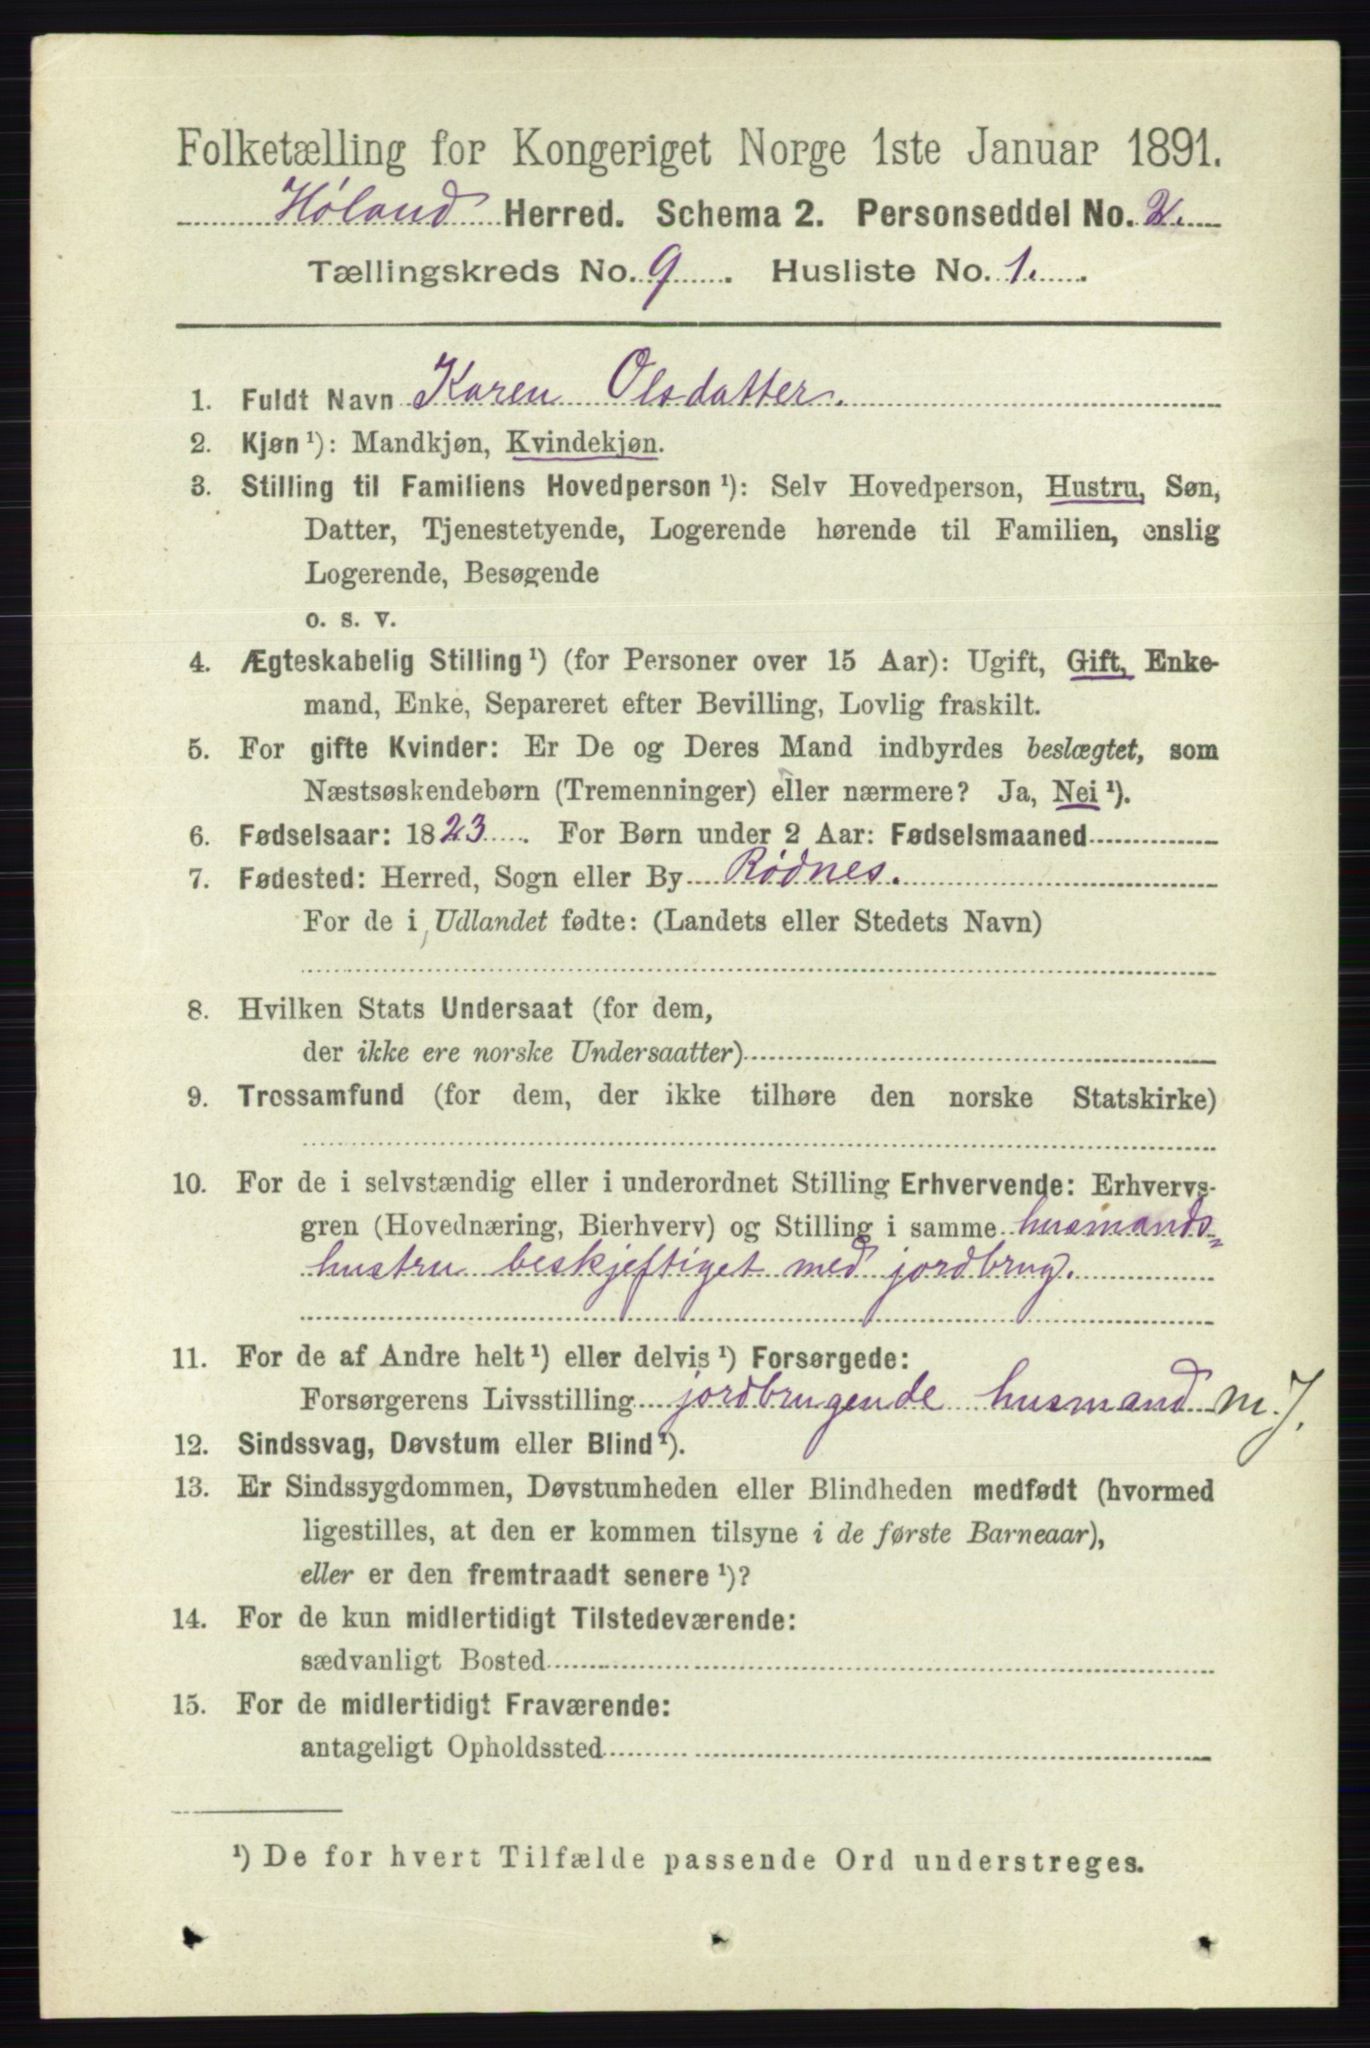 Folketælling for Kongeriget Norge 1ste Januar 1891.
Høland Herred. Schema 2. Personseddel No. 2.
Tællingskreds No. 9. Husliste No. 1.
1. Fuldt Navn Karen Olsdatter.
2. Kjøn ¹): Mandkjøn, Kvindekjøn.
3. Stilling til Familiens Hovedperson ¹): Selv Hovedperson, Hustru, Søn,
Datter, Tjenestetyende, Logerende hørende til Familien, enslig
Logerende, Besøgende
o. s. v.
4. Ægteskabelig Stilling ¹) (for Personer over 15 Aar): Ugift, Gift, Enke-
mand, Enke, Separeret efter Bevilling, Lovlig fraskilt.
5. For gifte Kvinder: Er De og Deres Mand indbyrdes beslægtet, som
Næstsøskendebørn (Tremenninger) eller nærmere? Ja, Nei ¹).
6. Fødselsaar: 1823. For Børn under 2 Aar: Fødselsmaaned
7. Fødested: Herred, Sogn eller By Rødnes.
For de i Udlandet fødte: (Landets eller Stedets Navn)
8. Hvilken Stats Undersaat (for dem,
der ikke ere norske Undersaatter)
9. Trossamfund (for dem, der ikke tilhøre den norske Statskirke)
10. For de i selvstændig eller i underordnet Stilling Erhvervende: Erhvervs-
gren (Hovednæring, Bierhverv) og Stilling i samme husmands=
hustru beskjeftiget med jordbrug.
11. For de af Andre helt ¹) eller delvis ¹) Forsørgede:
Forsørgerens Livsstilling jordbrugende husmand m. J.
12. Sindssvag, Døvstum eller Blind ¹).
13. Er Sindssygdommen, Døvstumheden eller Blindheden medfødt (hvormed
ligestilles, at den er kommen tilsyne i de første Barneaar),
eller er den fremtraadt senere ¹)?
14. For de kun midlertidigt Tilstedeværende:
sædvanligt Bosted
15. For de midlertidigt Fraværende:
antageligt Opholdssted
¹) De for hvert Tilfælde passende Ord understreges.